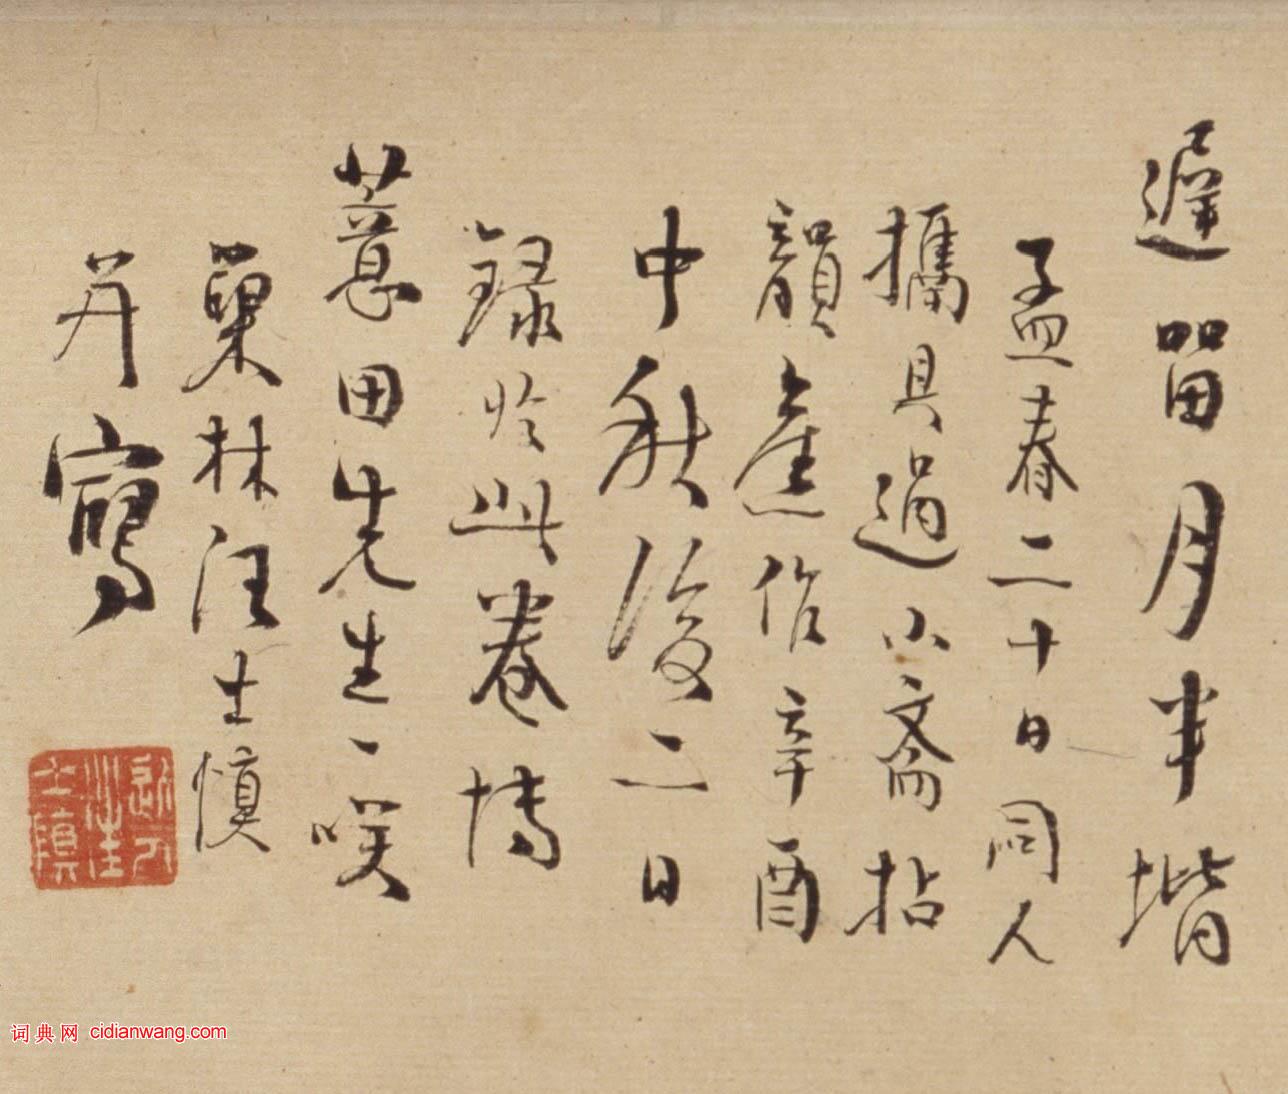 遲留月半堦
孟春二十日同人
攜具過小斋拈
韻產作辛酉
中秋後二日
録於此卷博
薏田先生一咲
巢林汪士慎
并寫
詞典网 cidianwang.com